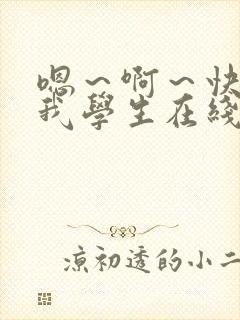 嗯〜啊〜快
我學生在綫
凉初透的小二